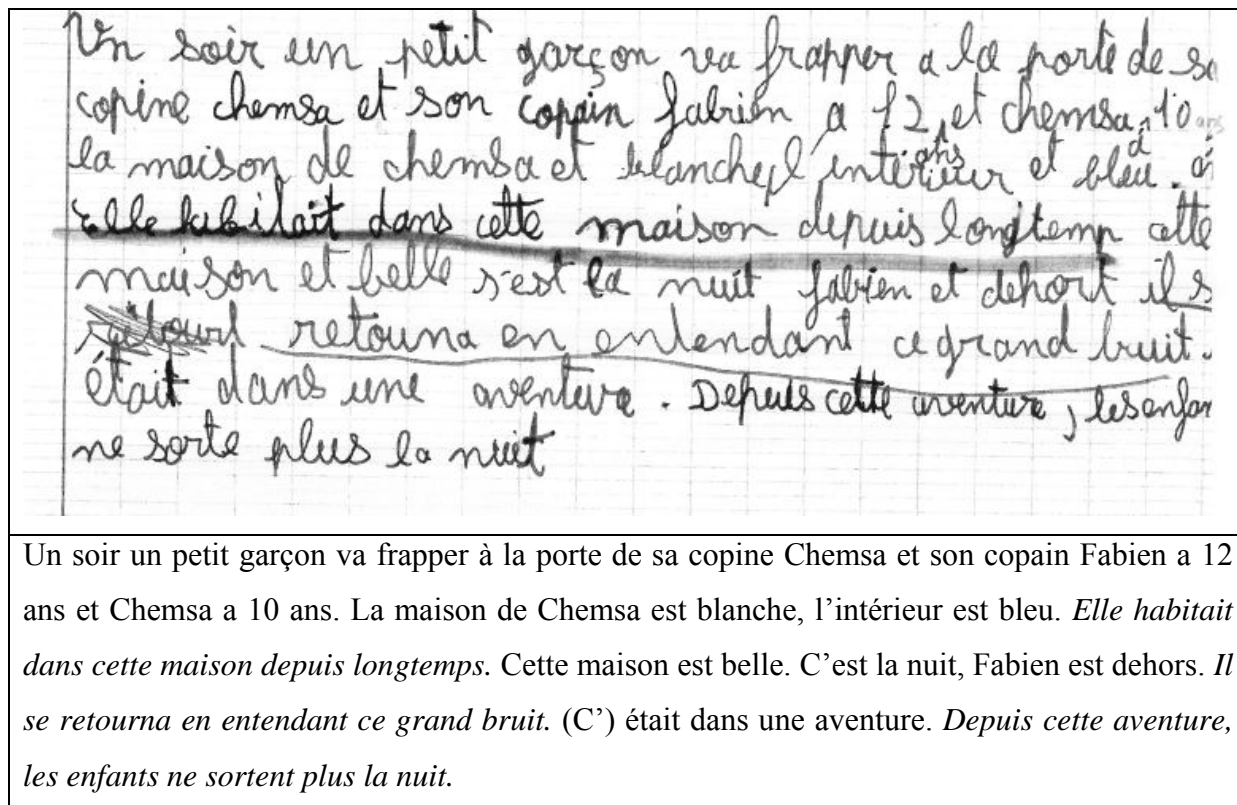 Un soir un petit garçon va frapper a la porte de sa
copine chemsa et son copain fabien a 12 ans et chemsa a 10 ans
la maison de chemsa et blanche l'intérieur et bleu.
Elle habitait dans cette maison depuis longtemp cette
maison et belle s'est la nuit fabien et dehort il s
retouna en entendant ce grand bruit.
était dans une aventure. Depuis cette aventure, les enfan
ne sorte plus la nuit
Un soir un petit garçon va frapper à la porte de sa copine Chemsa et son copain Fabien a 12
ans et Chemsa a 10 ans. La maison de Chemsa est blanche, l’intérieur est bleu. Elle habitait
dans cette maison depuis longtemps. Cette maison est belle. C’est la nuit, Fabien est dehors. Il
se retourna en entendant ce grand bruit. (C’) était dans une aventure. Depuis cette aventure,
les enfants ne sortent plus la nuit.